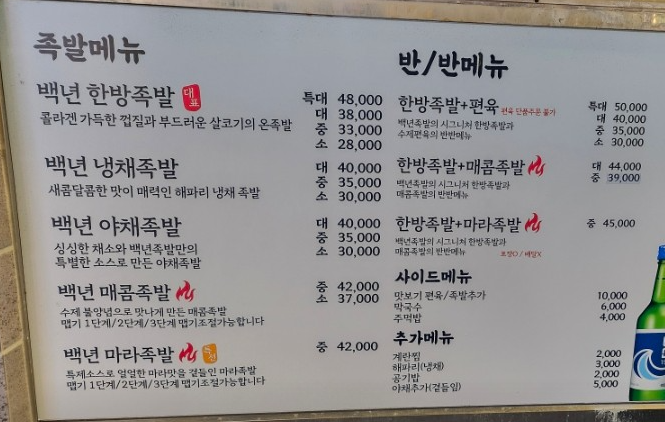 족발메뉴
백년 한방족발 대표
콜라겐 가득한 껍질과 부드러운 살코기의 온족발
특대 48,000
대 38,000
중 33,000
소 28,000
백년 냉채족발
새콤달콤한 맛이 매력인 해파리 냉채 족발
대 40,000
중 35,000
소 30,000
백년 야채족발
싱싱한 채소와 백년족발만의
특별한 소스로 만든 야채족발
대 40,000
중 35,000
소 30,000
백년 매콤족발
수제 불양념으로 맛나게 만든 매콤족발
맵기 1단계/2단계/3단계 맵기조절가능합니다
중 42,000
소 37,000
백년 마라족발 추천
특제소스로 얼얼한 마라맛을 곁들인 마라족발
맵기 1단계/2단계/3단계 맵기조절가능합니다
중 42,000
반/반메뉴
한방족발+편육 편육 단품주문 불가
백년족발의 시그니처 한방족발과
수제편육의 반반메뉴
특대 50,000
대 40,000
중 35,000
소 30,000
한방족발+매콤족발
백년족발의 시그니처 한방족발과
매콤족발의 반반메뉴
대 44,000
중 39,000
한방족발+마라족발
백년족발의 시그니처 한방족발과
매콤족발의 반반메뉴
포장O / 배달X
중 45,000
사이드메뉴
맛보기 편육/족발추가 10,000
막국수 6,000
주먹밥 4,000
추가메뉴
계란찜 2,000
해파리(냉채) 3,000
공기밥 2,000
야채추가(곁들임) 5,000